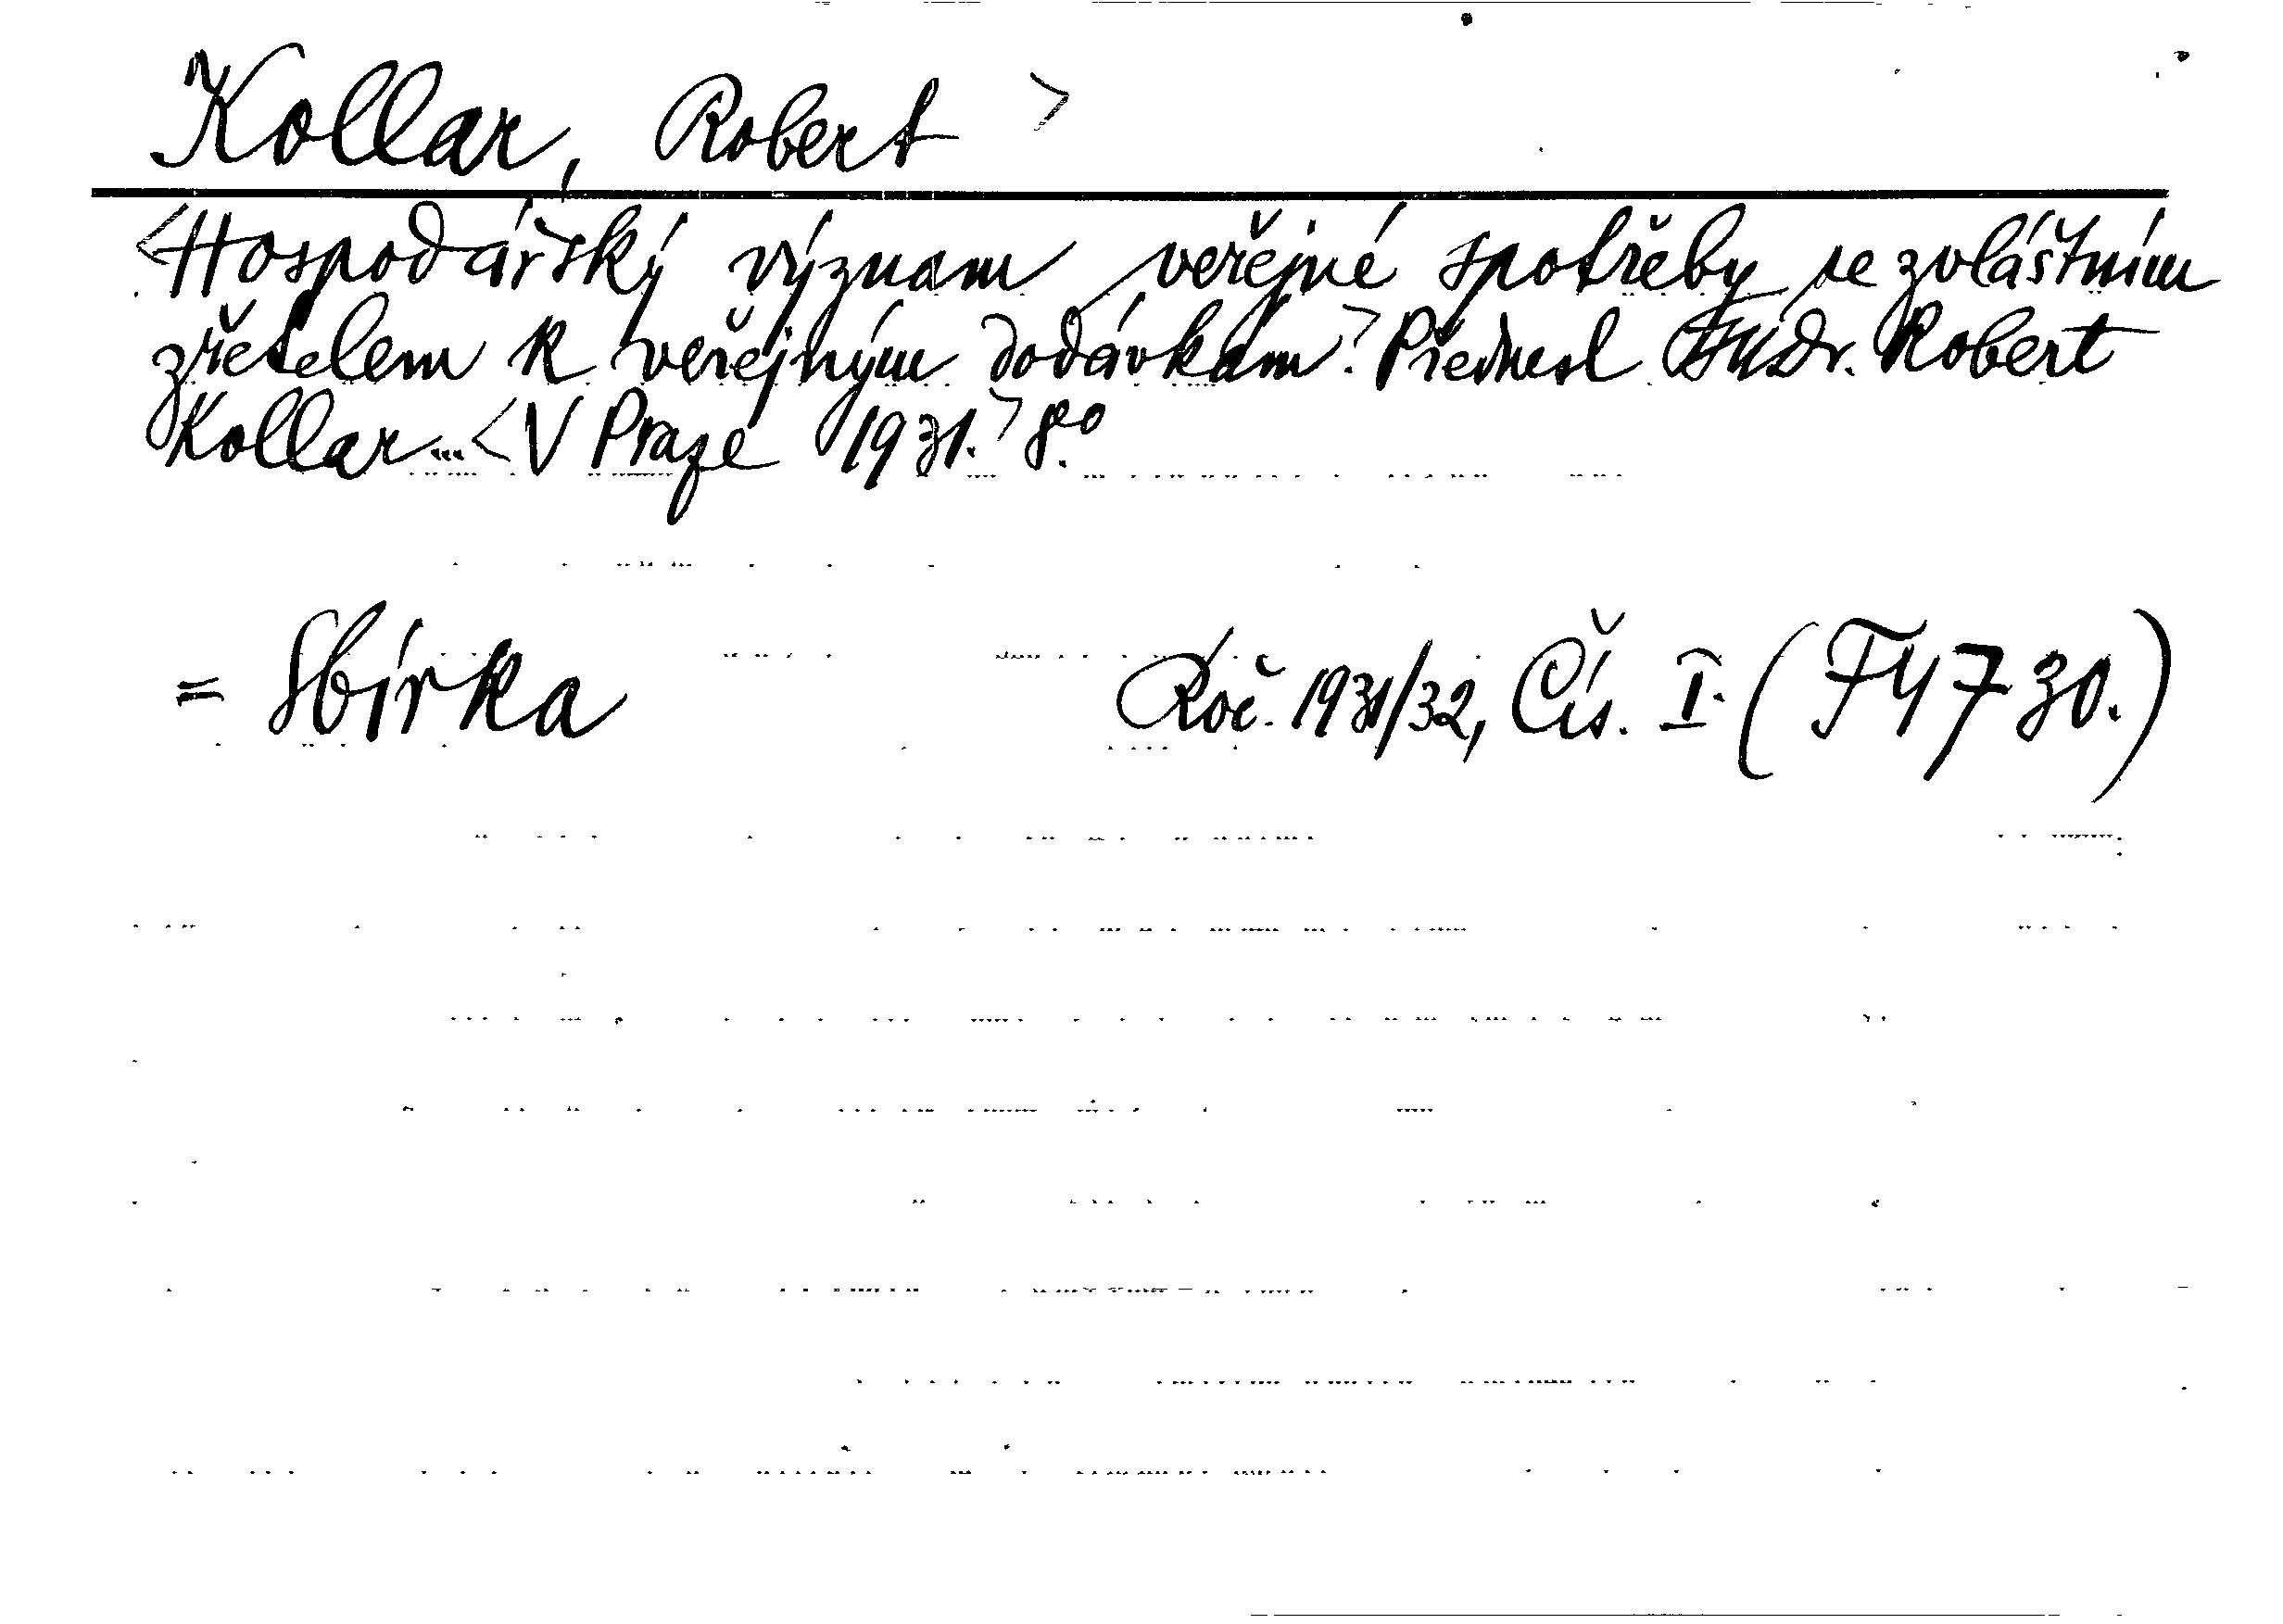 Kollar, Robert >
<Hospodářský význam veřejné spotřeby se zvláštním
zřetelem k veřejným dodávkám.> Přednesl JUDr. Robert
Kollar...<V Praze 1931.> 8.º
= Sbírka Roč. 1931/32, Čís. I. (F4730.)